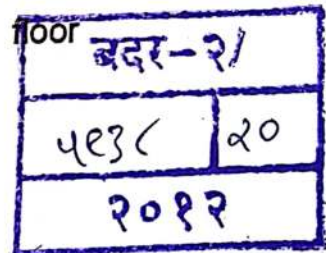 floor
बदर-२/
५९३८ २०
२०१२